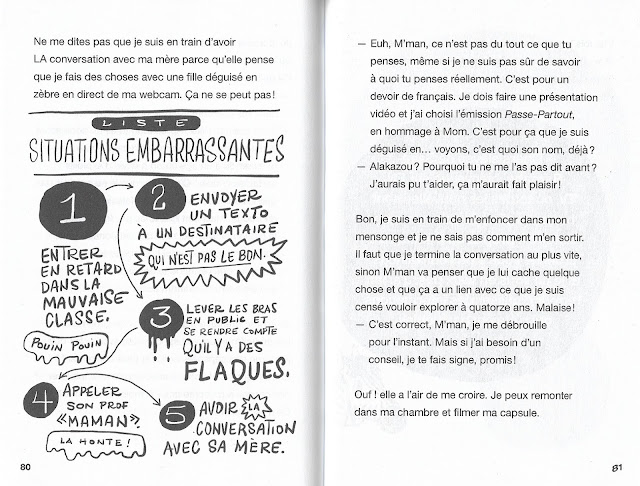 Ne me dites pas que je suis en train d'avoir
LA conversation avec ma mère parce qu'elle pense
que je fais des choses avec une fille déguisé en
zèbre en direct de ma webcam. Ça ne se peut pas !
LISTE
SITUATIONS EMBARRASSANTES
1
ENTRER
EN RETARD
DANS LA
MAUVAISE
CLASSE.
POUIN POUIN
2
ENVOYER
UN TEXTO
À UN DESTINATAIRE
QUI N'EST PAS LE BON.
3
LEVER LES BRAS
EN PUBLIC ET
SE RENDRE COMPTE
QU'IL Y A DES
FLAQUES.
4
APPELER
SON PROF
«MAMAN».
LA HONTE !
5
AVOIR LA
CONVERSATION
AVEC SA MÈRE.
80
— Euh, M'man, ce n'est pas du tout ce que tu
penses, même si je ne suis pas sûr de savoir
à quoi tu penses réellement. C'est pour un
devoir de français. Je dois faire une présentation
vidéo et j'ai choisi l'émission Passe-Partout,
en hommage à Mom. C'est pour ça que je suis
déguisé en… voyons, c'est quoi son nom, déjà ?
— Alakazou ? Pourquoi tu ne me l'as pas dit avant ?
J'aurais pu t'aider, ça m'aurait fait plaisir !
Bon, je suis en train de m'enfoncer dans mon
mensonge et je ne sais pas comment m'en sortir.
Il faut que je termine la conversation au plus vite,
sinon M'man va penser que je lui cache quelque
chose et que ça a un lien avec ce que je suis
censé vouloir explorer à quatorze ans. Malaise !
— C'est correct, M'man, je me débrouille
pour l'instant. Mais si j'ai besoin d'un
conseil, je te fais signe, promis !
Ouf ! elle a l'air de me croire. Je peux remonter
dans ma chambre et filmer ma capsule.
81